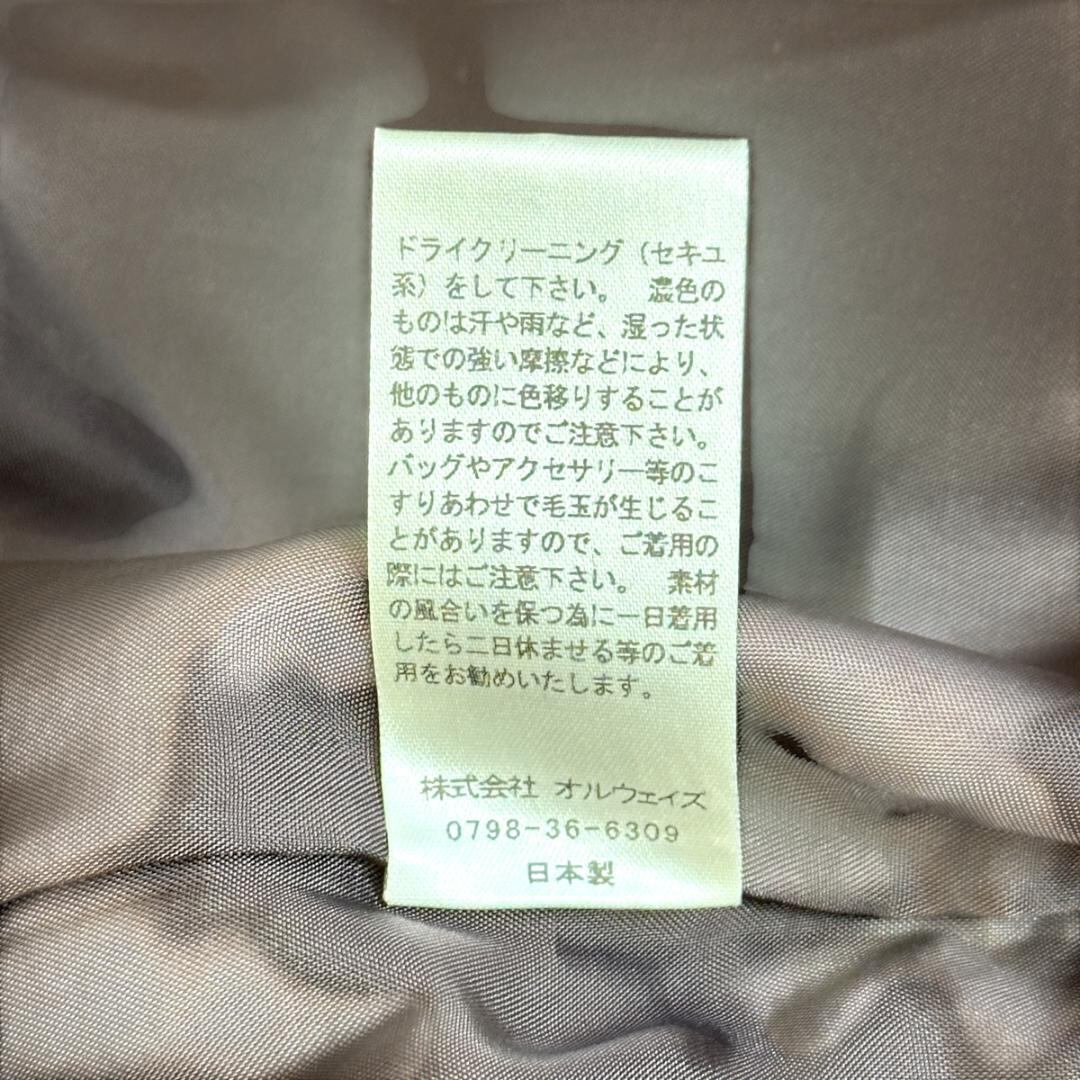 ドライクリーニング（セキユ
系）をして下さい。　濃色の
ものは汗や雨など、湿った状
態での強い摩擦などにより、
他のものに色移りすることが
ありますのでご注意下さい。
バッグやアクセサリー等のこ
すりあわせで毛玉が生じるこ
とがありますので、ご着用の
際にはご注意下さい。　素材
の風合いを保つ為に一日着用
したら二日休ませる等のご着
用をお勧めいたします。
株式会社 オルウェイズ
0798-36-6309
日本製